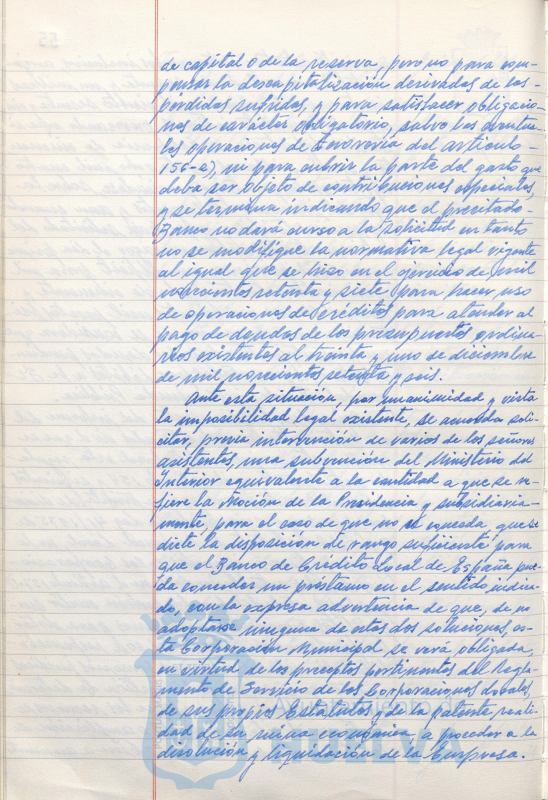 de capital o de la reserva, pero no para com-
pensar la descapitalización derivadas de las
perdidas sufridas, y para satisfacer obligacio-
nes de carácter obligatorio, salvo las eventua-
les operaciones de Tesorería del artículo-
156-a), ni para cubrir la parte del gasto que
deba ser objeto de contribuciones especiales,
y se termina indicando que el precitado-
Banco no dará curso a la solicitud en tanto
no se modifique la normativa legal vigente
al igual que se hizo en el ejercicio de mil
novecientos setenta y siete para hacer uso
de operaciones de créditos para atender al
pago de deudas de los presupuestos ordina-
rios existentes al treinta y uno de diciembre
de mil novecientos setenta y seis.
Ante esta situación, por unanimidad y vista
la imposibilidad legal existente, se acuerda soli-
citar, previa intervención de varios de los señores
asistentes, una subvención del Ministerio del
Interior equivalente a la cantidad a que se re-
fiere la Moción de la Presidencia y subsidiaria-
mente, para el caso de que no se conceda, que se
dicte la disposición de rango suficiente para
que el Banco de Crédito Local de España pue-
da conceder un préstamo en el sentido indica-
do, con la expresa advertencia de que, de no
adoptarse ninguna de estas dos soluciones, es-
ta Corporación Municipal se verá obligada,
en virtud de los preceptos pertinentes del Regla-
mento de Servicio de las Corporaciones Locales,
de sus propios Estatutos y de la patente reali-
dad de su ruina económica, a proceder a la
disolución y liquidación de la Empresa.